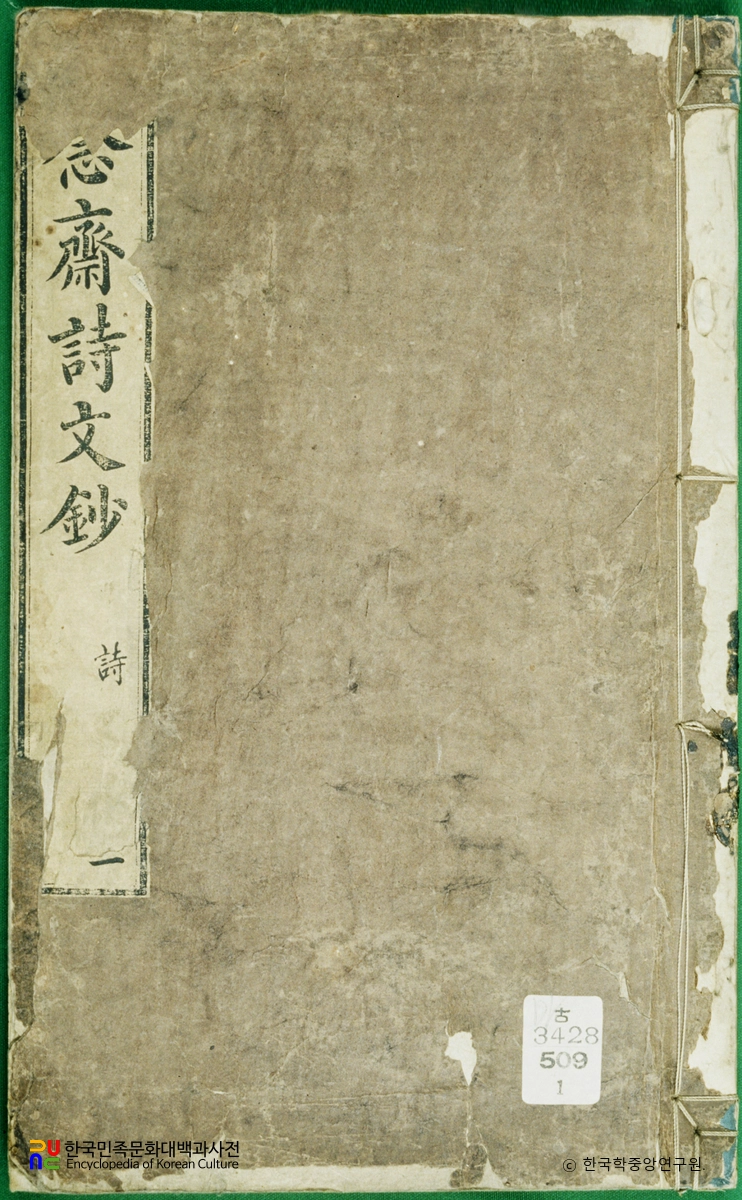 齋詩文鈔
詩
一
古
3428
509
1
한국민족문화대백과사전
Encyclopedia of Korean Culture
ⓒ 한국학중앙연구원